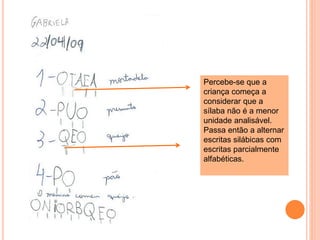 GABRIELA
22/04/09
1-OIAEA mortadela
2-PUO presunto
3-QEO queijo
4-PO pão
O menino comeu queijo.
ONIORBQEO
Percebe-se que a
criança começa a
considerar que a
sílaba não é a menor
unidade analisável.
Passa então a alternar
escritas silábicas com
escritas parcialmente
alfabéticas.